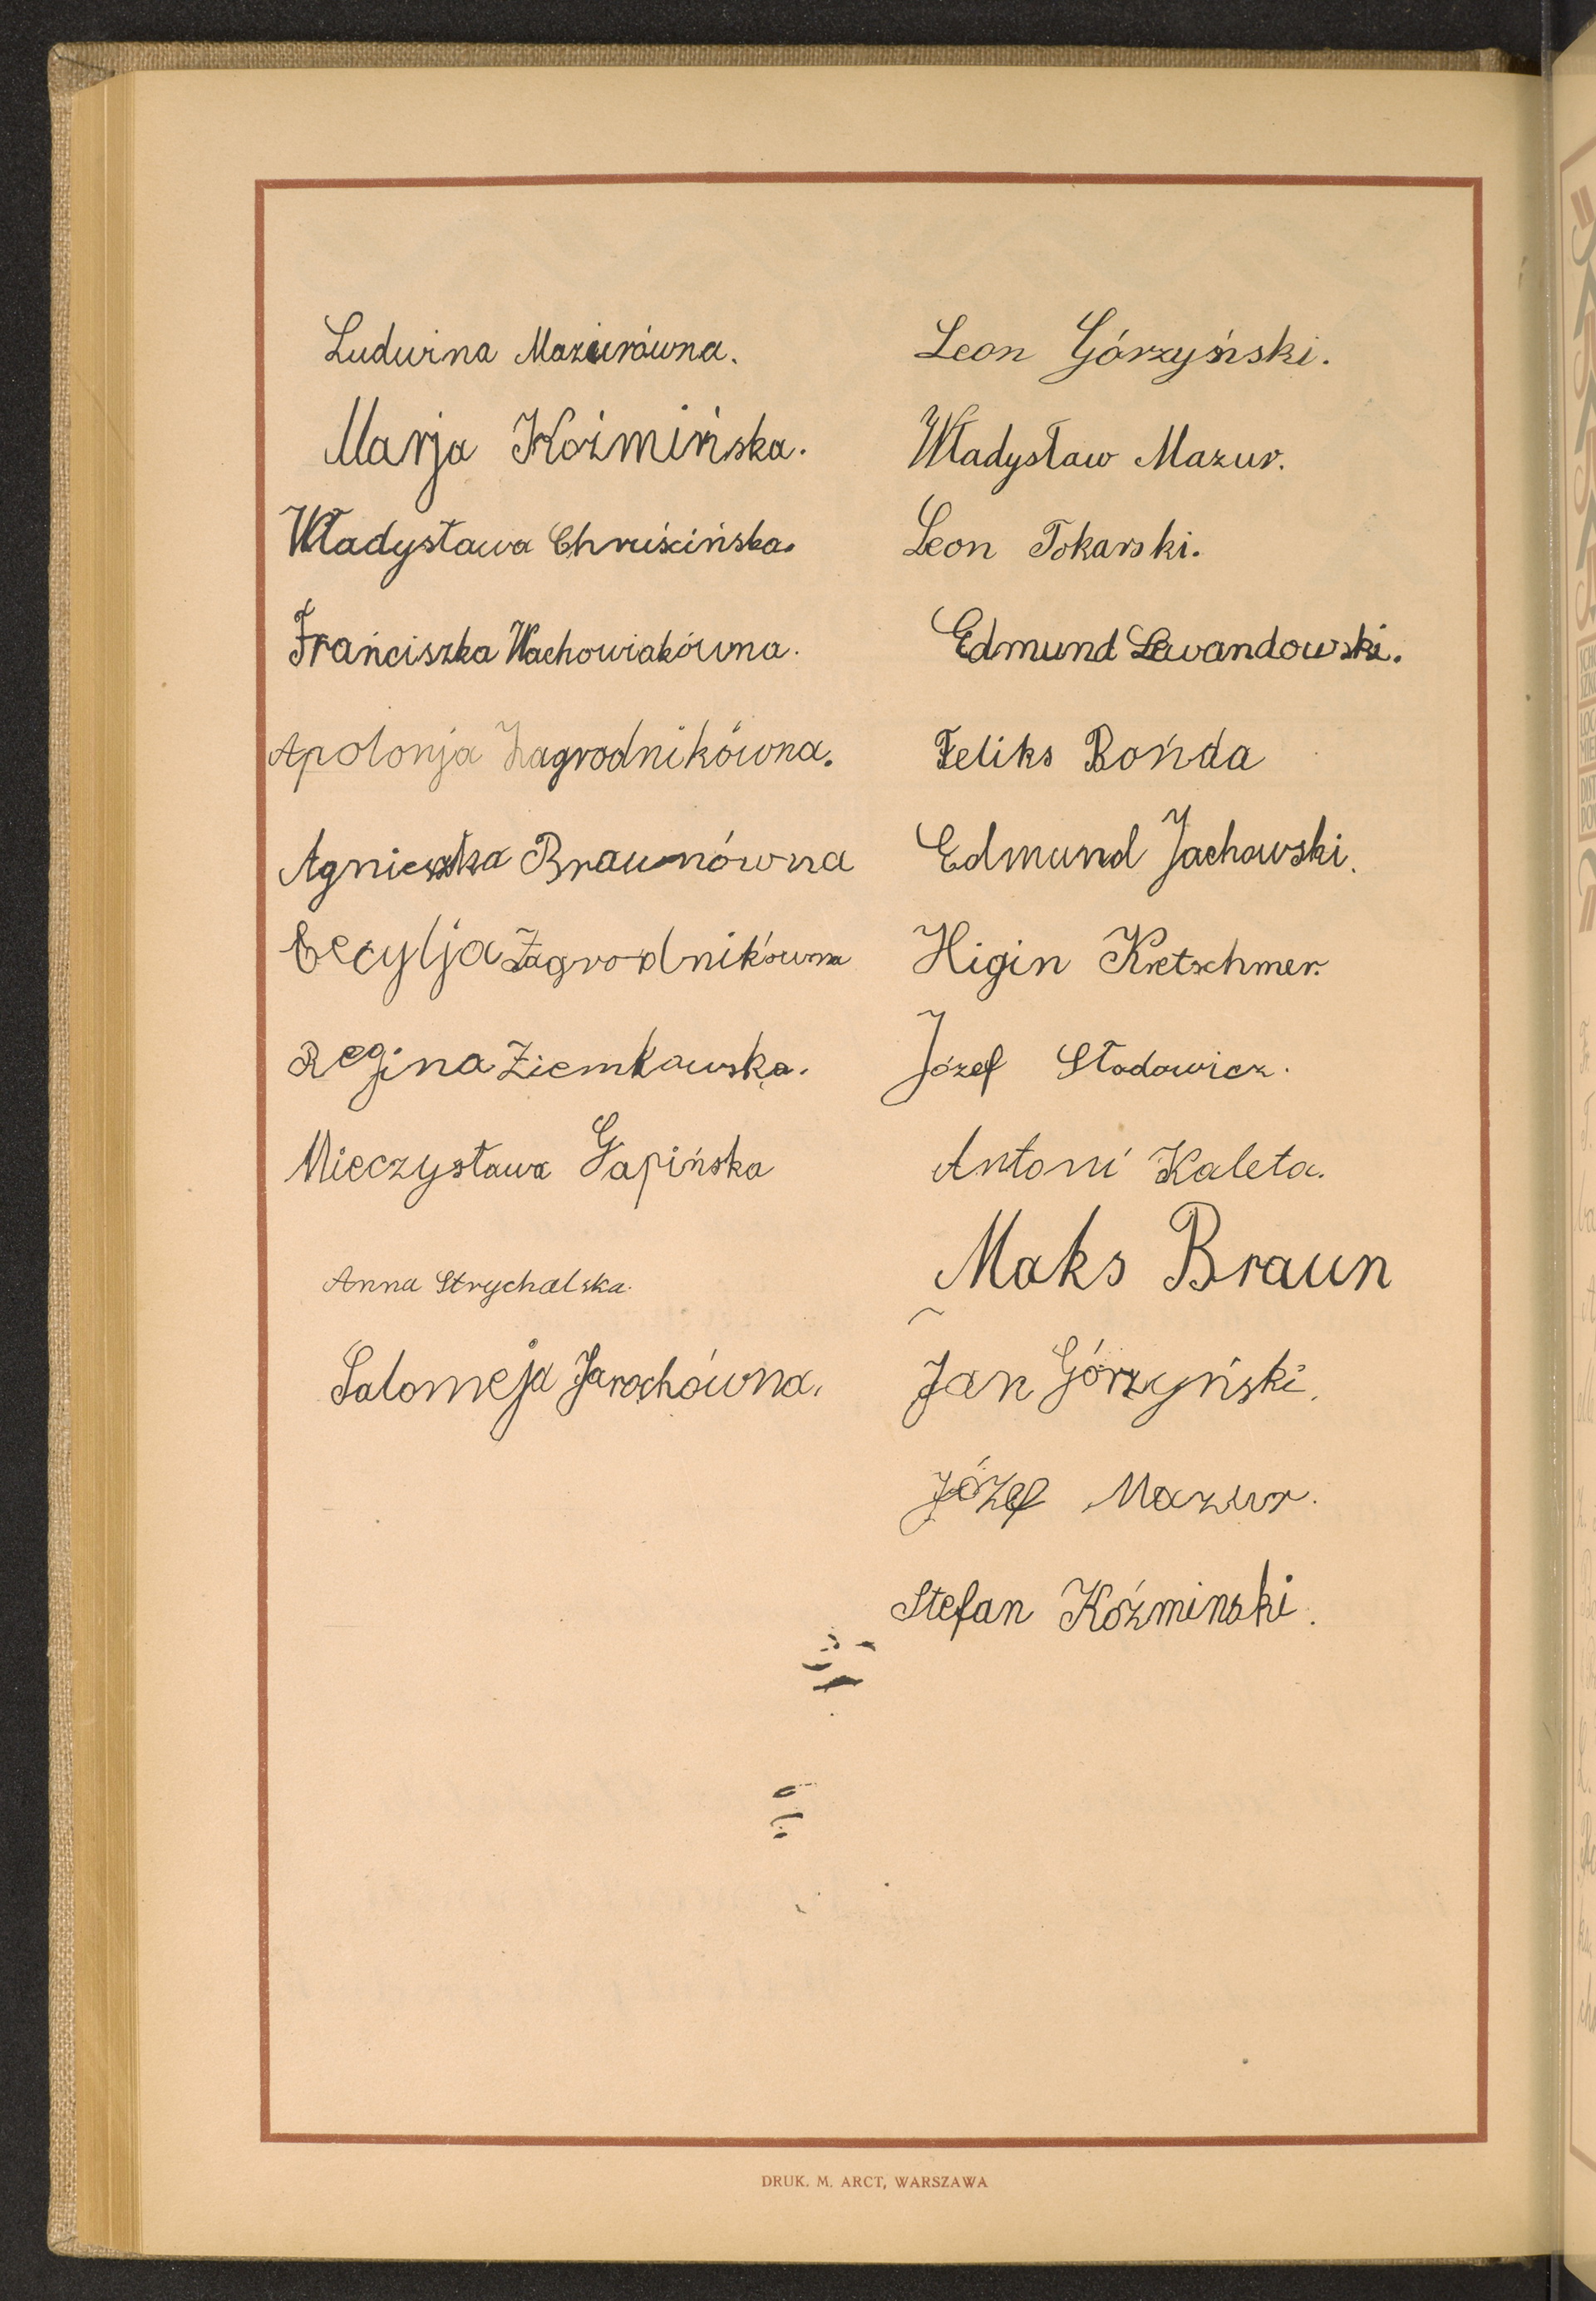 Ludwina Mazurówna.
Marja Koźmińska.
Władysława Chruścińska.
Frańciszka Wachowiakówna.
Apolonja Zagrodnikówna.
Agnieszka Braunówna
Cecylja Zagrodnikówna
Regina Ziemkowska.
Mieczysława Gapińska
Anna Strychalska.
Salomeja Jarochówna.
Leon Górzyński.
Władysław Mazur.
Leon Tokarski.
Edmund Lewandowski.
Feliks Bońda
Edmund Jachowski.
Higin Kretschmer.
Józef Słodowicz.
Antoni Kaleta.
Maks Braun
Jan Górzyński.
Józef Mazur.
Stefan Koźminski.
DRUK. M. ARCT, WARSZAWA